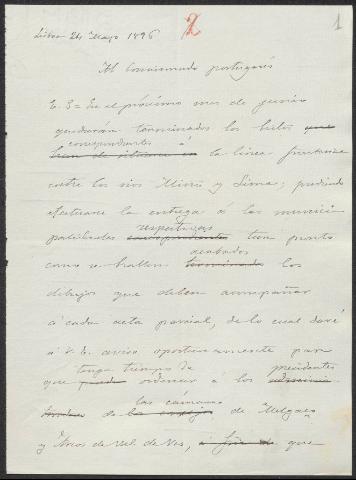 Lisboa 24 Mayo 1896
2
1
Al Comisionado portugués
E. S = En el próximo mes de junio
quedarán terminados los hitos que
correspondientes á
han de situarse en la línea fronteriza
entre los rios Miño y Lima; pudiendo
efectuarse la entrega á las munici
respectivas
palidades tan pronto
acabados
como se hallen terminados los
dibujos que deben acompañar
á cada acta parcial, de lo cual daré
á V. E. aviso oportunamente para
tenga tiempo de presidentes
que pueda ordenar á los
las cámaras
de de Melgaço
y Arcos de Val de Vez, á fin de que